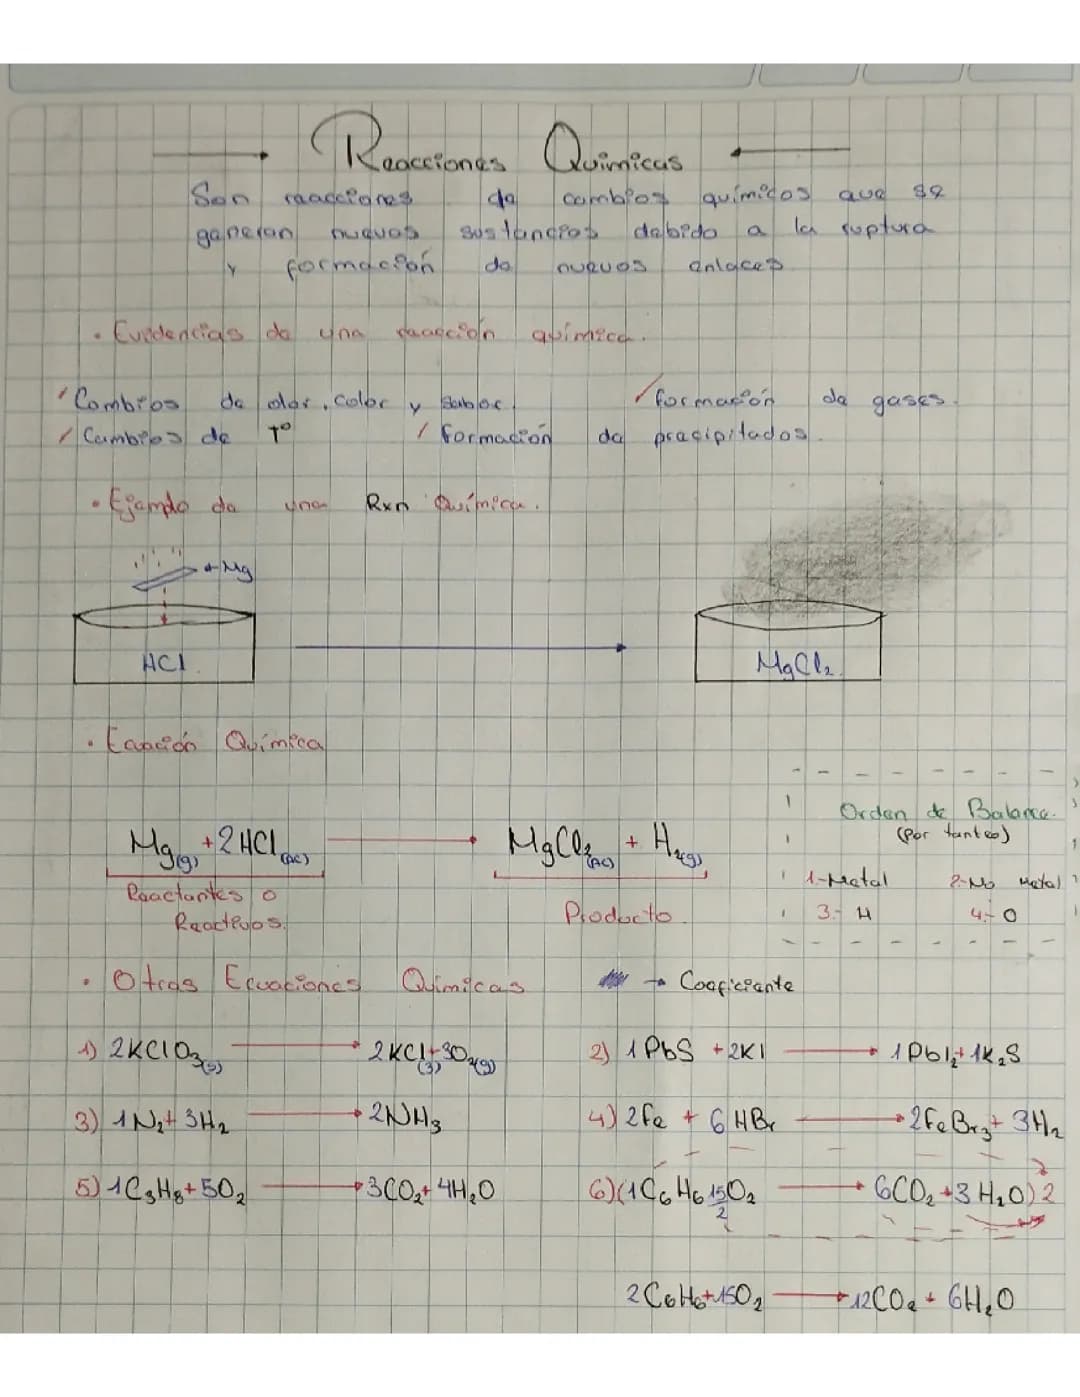 Reacciones Químicas
Son reacciones de cambios químicos que se
generan nuevas sustancias debido a la ruptura
y formación de nuevos enlaces
• Evidencias de una reacción química.
Cambios de olor, color y sabor.
formación de gases.
Cambios de T°
formación de precipitados.
• Ejemplo de una Rxn Química.
Mg
HCl
MgCl₂
• Ecuación Química
Orden de Balance.
(Por tanteo)
1-Metal 2-No Metal
3.- H 4.- O
Mg(g) + 2HCl(ac) → MgCl₂(ac) + H₂(g)
Reactantes o
Reactivos.
Producto.
• Otras Ecuaciones Químicas
→ Coeficiente
1) 2KClO₃(s) → 2KCl(s) + 3O₂(g)
2) 1PbS + 2KI → 1PbI₂ + 1K₂S
3) 1N₂ + 3H₂ → 2NH₃
4) 2Fe + 6HBr → 2FeBr₃ + 3H₂
5) 1C₃H₈ + 5O₂ → 3CO₂ + 4H₂O
6) (1C₆H₆ 15/2 O₂ → 6CO₂ + 3H₂O) 2
2C₆H₆ + 15O₂ → 12CO₂ + 6H₂O